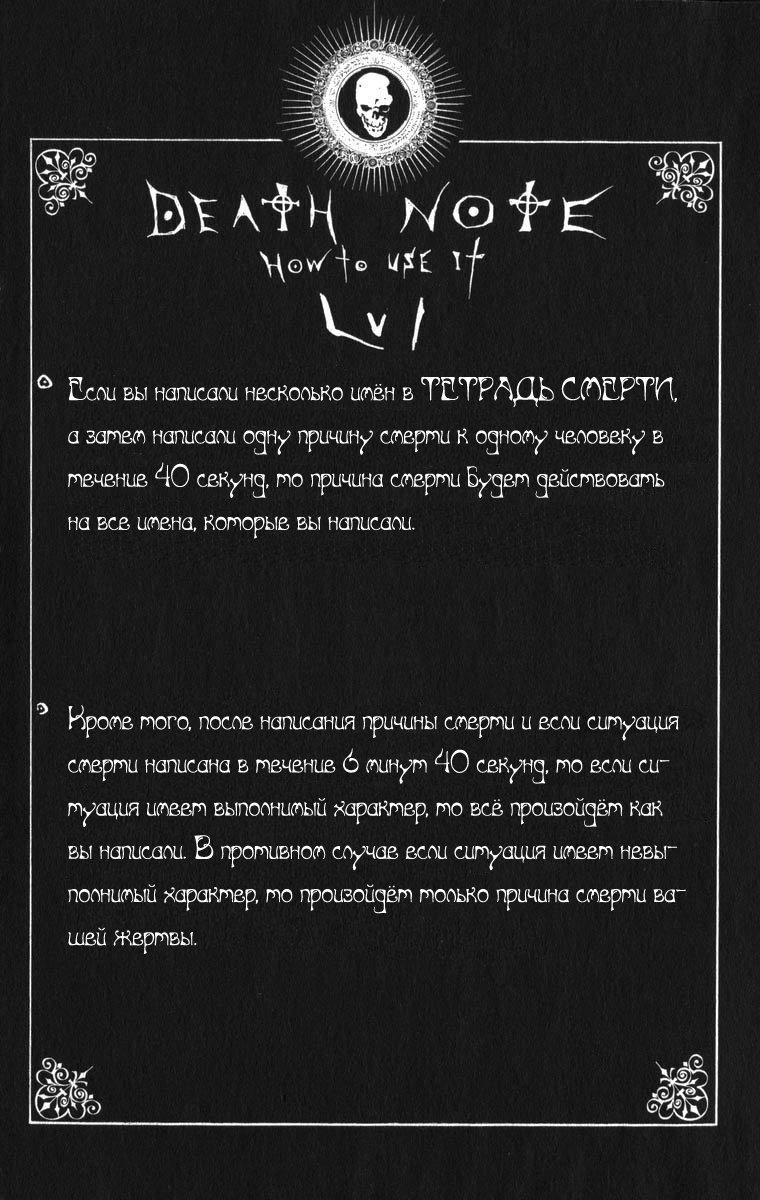 DEATH NOTE
HOW TO USE IT
LVI
Если вы написали несколько имён в ТЕТРАДЬ СМЕРТИ,
а затем написали одну причину смерти к одному человеку в
течение 40 секунд, то причина смерти Будет действовать
на все имена, которые вы написали.
Кроме того, после написания причины смерти и если ситуация
смерти написана в течение 6 минут 40 секунд, то если си-
туация имеет выполнимый характер, то всё произойдёт как
вы написали. В противном случае если ситуация имеет невы-
полнимый характер, то произойдёт только причина смерти ва-
шей жертвы.